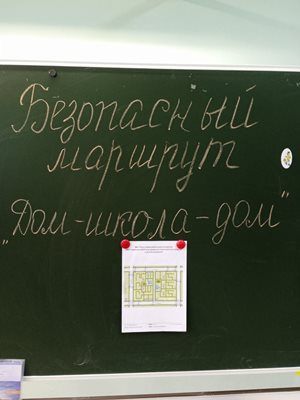 Безопасный
маршрут
„Дом-школа-дом"